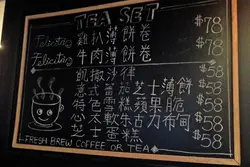 TEA SET
Felicitas
Felicitas
雞扒薄餅卷 $78
牛肉薄餅卷 $78
凱撒沙律 $58
意式蕃茄芝士薄餅 $58
特色雪糕蘋果脆 $58
心太軟朱古力布甸 $58
芝士蛋糕 $58
FRESH BREW COFFEE OR TEA